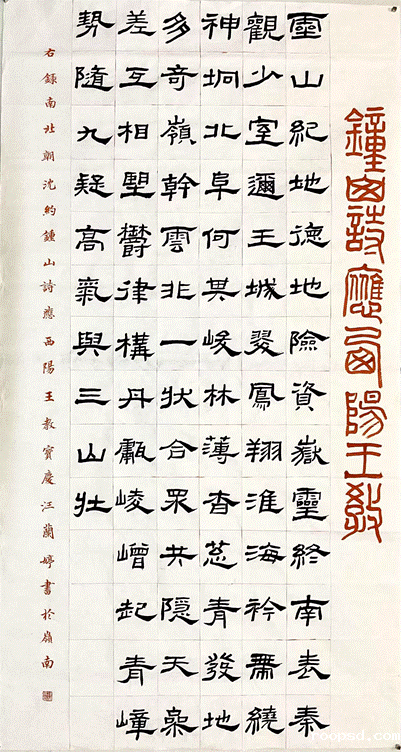 鐘山詩應西陽王教
靈山紀地德地險資嶽靈終南表秦
觀少室邇王城翠鳳翔淮海衿帶繞
神坰北阜何其峻林薄杳蔥青發地
多奇嶺幹雲非一狀合沓共隱天參
差互相望鬱律構丹巘崚嶒起青嶂
勢隨九疑高氣與三山壯
右錄南北朝沈約鍾山詩應西陽王教寶慶汪蘭婷書於嶺南
roopsd.com